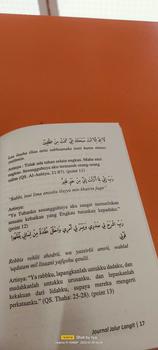 لَا إِلَهَ إِلَّا أَنْتَ سُبْحَانَكَ إِنِّي كُنْتُ مِنَ الظَّالِمِينَ
Laa ilaaha illaa anta subhaanaka inni kuntu minaz-
Artinya : Tidak ada tuhan selain engkau. Maha suci
engkau. Sesungguhnya aku termasuk orang-orang
zalim (QS. Al-Anbiya, 21:87). (point 11)
رَبِّ إِنِّي لِمَا أَنْزَلْتَ إِلَيَّ مِنْ خَيْرٍ فَقِيرٌ
"Rabbi, inni lima anzalta ilayya min khairin faqir"
Artinya:
"Ya Tuhanku sesungguhnya aku sangat memerlukan
sesuatu kebaikan yang Engkau turunkan kepadaku."
(point 12)
رَبِّ اشْرَحْ لِي صَدْرِي وَيَسِّرْ لِي أَمْرِي وَاحْلُلْ عُقْدَةً مِنْ لِسَانِي يَفْقَهُوا قَوْلِي
Robbis rohlii shodrii, wa yassirlii amrii, wahlul
'uqdatam mil lisaani yafqohu qouli.
Artinya: "Ya rabbku, lapangkanlah untukku dadaku, dan
mudahkanlah untukku urusanku, dan lepaskanlah
kekakuan dari lidahku, supaya mereka mengerti
perkataanku." (QS. Thaha: 25-28). (point 13)
Journal Jalur Langit | 17